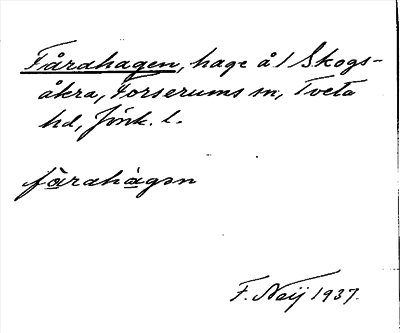 Fårahagen, hage å 1 Skogs-
åkra, Forserums sn, Tveta
hd, Jönk. l.
fàrahàgən
F. Neij 1937.